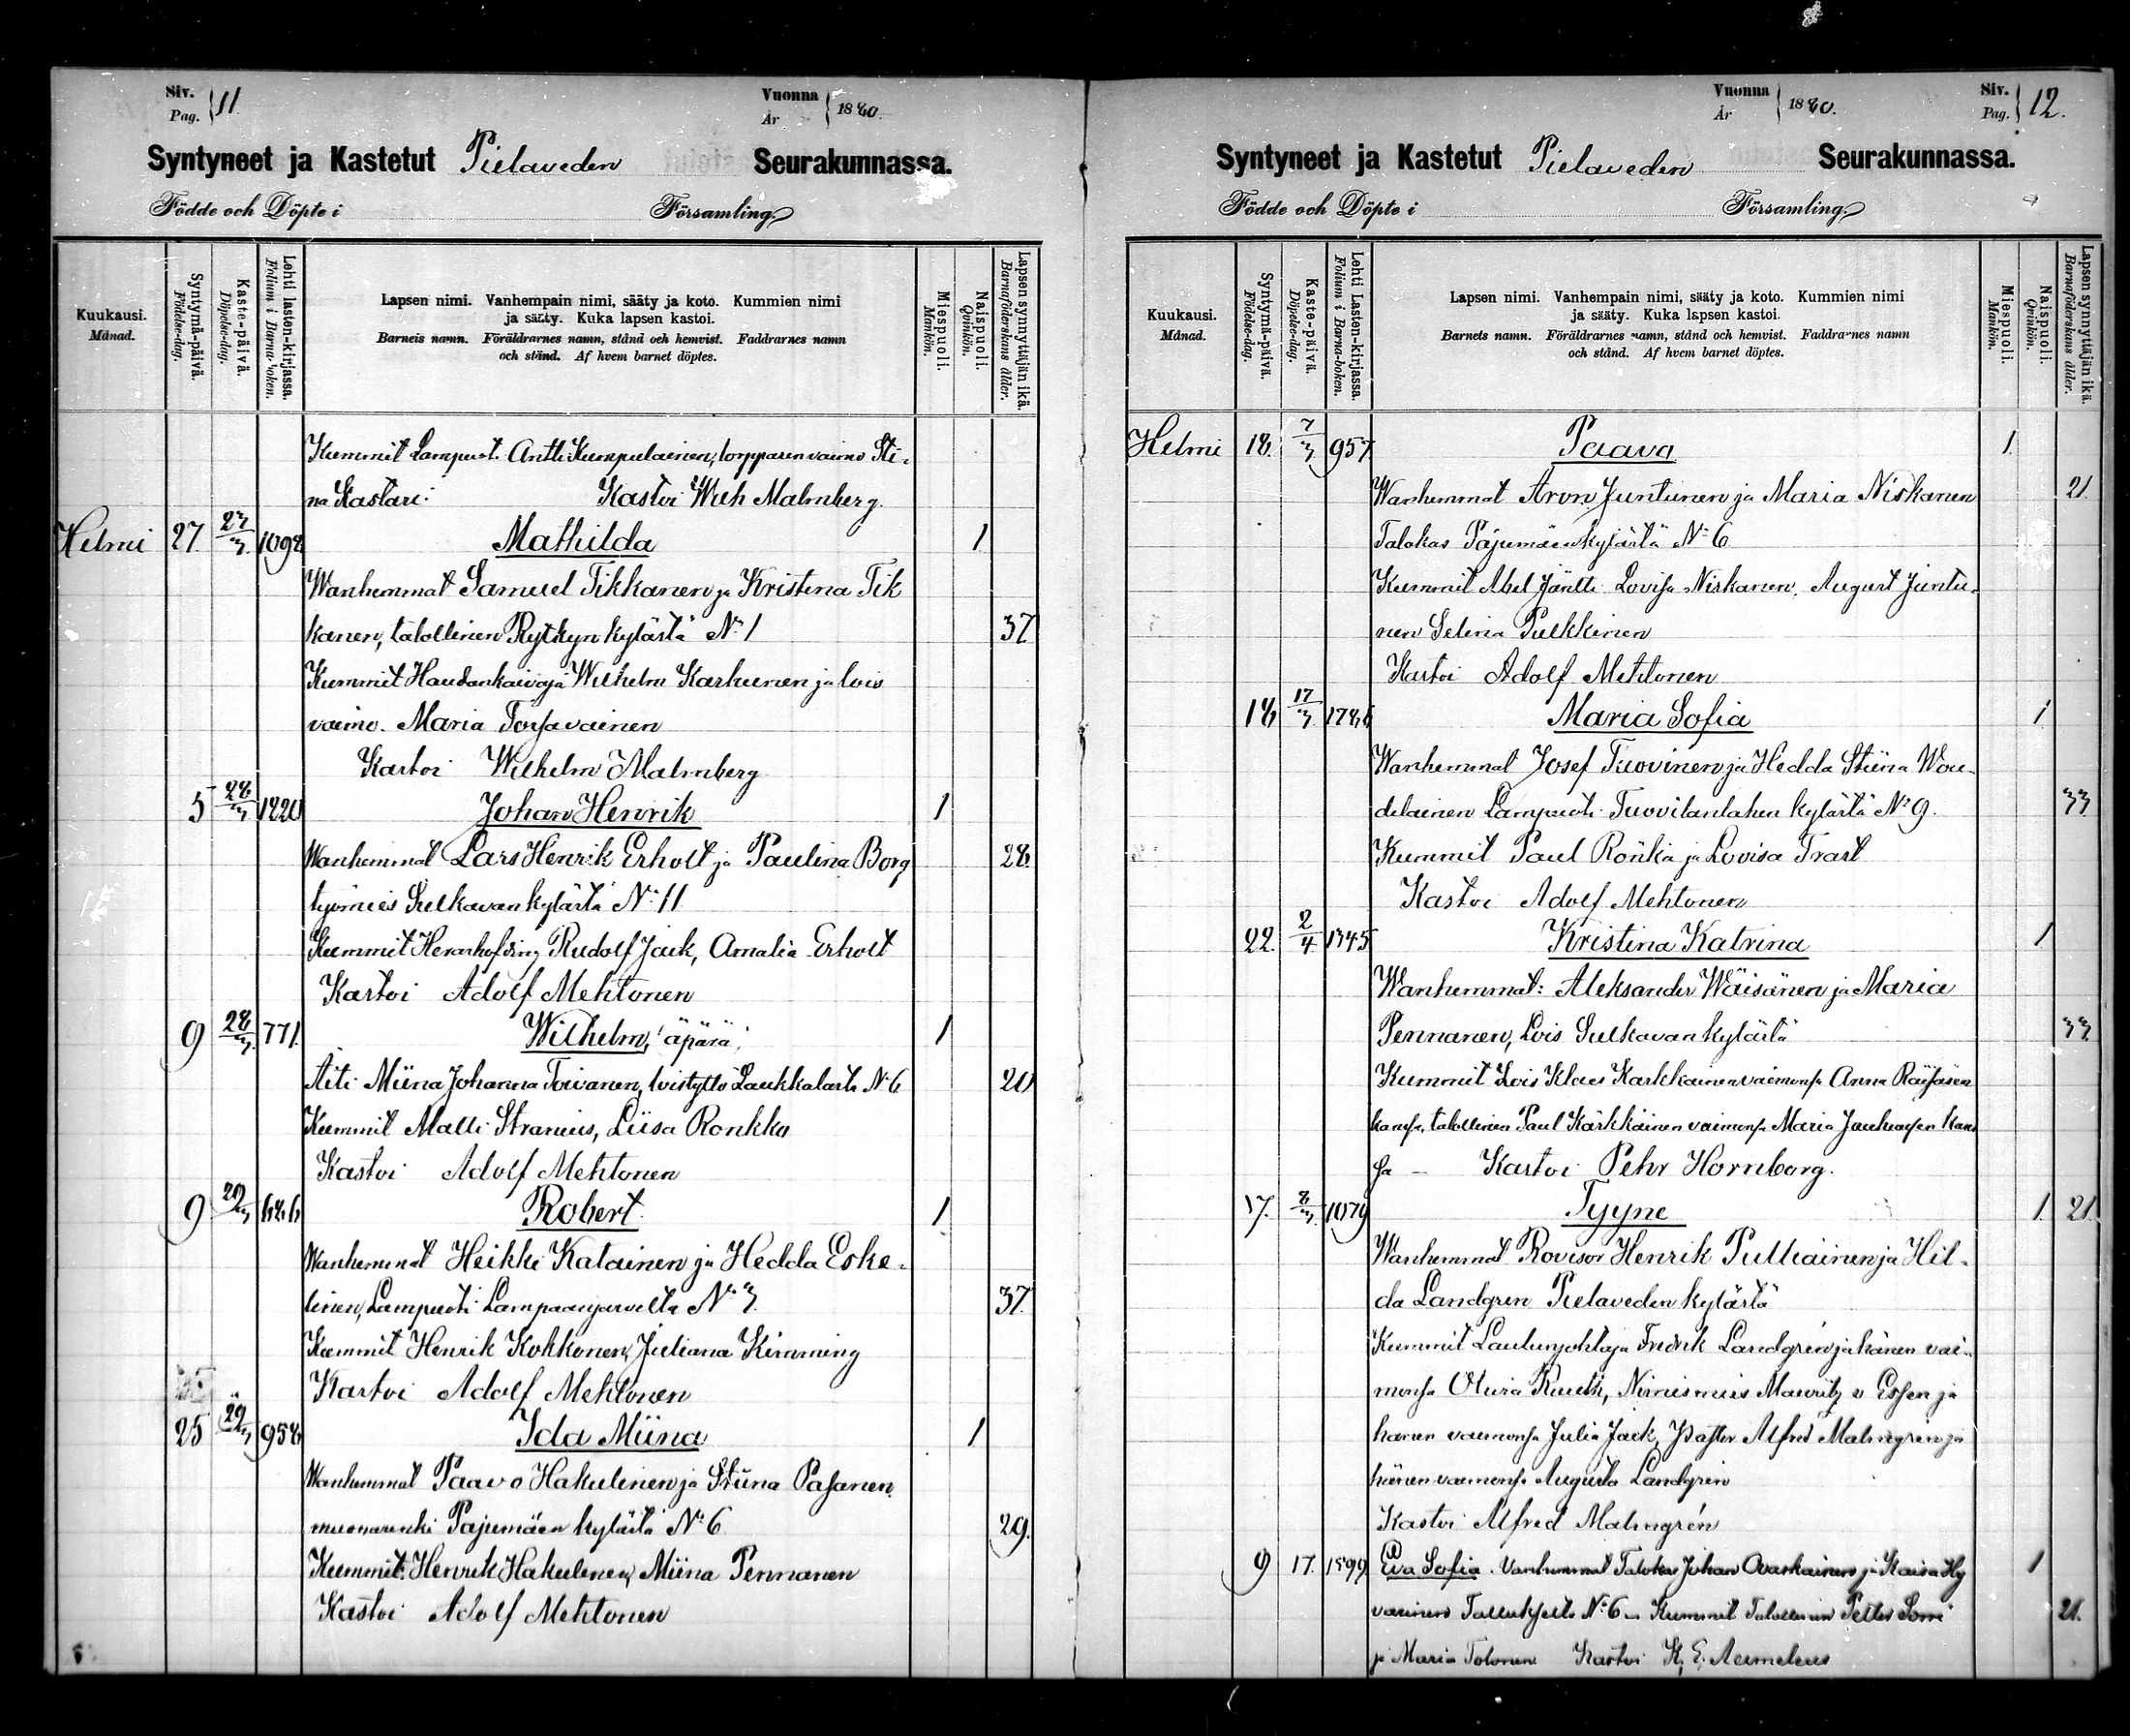 Siv.
Pag. 11.
Vuonna
År 1880.
Syntyneet ja Kastetut Pielaveden Seurakunnassa.
Födde och Döpte i Församling.
Kuukausi.
Månad.
Syntymä-päivä.
Födelse-dag.
Kaste-päivä.
Döpelse-dag.
Lehti lasten-kirjassa.
Folium i Barna-boken.
Lapsen nimi. Vanhempain nimi, sääty ja koto. Kummien nimi
ja sääty. Kuka lapsen kastoi.
Barnets namn. Föräldrarnes namn, stånd och hemvist. Faddrarnes namn
och stånd. Af hvem barnet döptes.
Miespuoli.
Mankön.
Naispuoli.
Qvinkön.
Lapsen synnyttäjän ikä.
Barnaföderskans ålder.
Kummit Lampuot. Antti Kumpulainen, torpparin vaimo Sti-
na Kastari. Kastoi Wilh Malmberg.
Helmi 27. 23/3 1098 Mathilda 1
Wanhemmat Samuel Tikkanen ja Kristina Tik
kanen, talollinen Rytkyn kylästä No 1 37
Kummit Haudankaivaja Wilhelm Karhunen ja lois
vaimo. Maria Toisavainen
Kastoi Wilhelm Malmberg
5 28/3 1220 Johan Henrik 1
Wanhemmat Lars Henrik Erholt ja Paulina Borg 28.
työmies Sulkavan kylästä No 11
Kummit Rudolf Jack, Amalia Erholt
Kastoi Adolf Mehtonen
9 28/3 771. Wilhelm, äpärä 1
Äiti Miina Johanna Toivanen, loistyttö Laukkalasta No 6 20
Kummit Malli Stranius, Liisa Ronkko
Kastoi Adolf Mehtonen
9 29/3 Robert 1
Wanhemmat Heikki Katainen ja Hedda Eske-
linen, Lampuoti Lampaanjarvelta No 3. 37.
Kummit Henrik Kokkonen, Juliana Kimming
Kastoi Adolf Mehtonen
25 29/3 958 Ida Miina 1
Wanhemmat Paavo Hakulinen ja Stiina Pasanen
muonarenki Pajumäen kylästä No 6 29.
Kummit: Henrik Hakulinen, Miina Pennanen
Kastoi Adolf Mehtonen
Vuonna
År 1880.
Siv.
Pag. 12.
Syntyneet ja Kastetut Pielaveden Seurakunnassa.
Födde och Döpte i Församling.
Kuukausi.
Månad.
Syntymä-päivä.
Födelse-dag.
Kaste-päivä.
Döpelse-dag.
Lehti Lasten-kirjassa.
Folium i Barna-boken.
Lapsen nimi. Vanhempain nimi, sääty ja koto. Kummien nimi
ja sääty. Kuka lapsen kastoi.
Barnets namn. Föräldrarnes namn, stånd och hemvist. Faddrarnes namn
och stånd. Af hvem barnet döptes.
Miespuoli.
Mankön.
Naispuoli.
Qvinkön.
Lapsen synnyttäjän ikä.
Barnaföderskans ålder.
Helmi 18. 7/3 957 Paavo 1.
Wanhemmat Aron Juntunen ja Maria Niskanen 21.
Talokas Pajumäen kylästä No 6
Kummit Abel Jäntti Lovisa Niskanen, August Juntu-
nen Selina Pulkkinen
Kastoi Adolf Mehtonen
18 17/3 1786 Maria Sofia 1
Wanhemmat Josef Tuovinen ja Hedda Stiina Wou-
delainen Lampuoti Tuovilanlahen kylästä No 9. 33
Kummit Paul Rönkä ja Lovisa Trast
Kastoi Adolf Mehtonen
22. 2/4 1345 Kristina Katrina 1
Wanhemmat: Aleksander Wäisänen ja Maria
Pennanen, Lois Sulkavan kylästä 33.
Kummit Lois Klaes Karkkainen vaimonsa Anna Räisäsen
kansa, talollinen Paul Kärkkäinen vaimonsa Maria Jauhiaisen kan
sa — Kastoi Pehr Hornborg.
17. 8/3 1079 Tyyne 1. 21.
Wanhemmat Rovisor Henrik Pulliainen ja Hil-
da Landgren Pielaveden kylästä
Kummit Laulunjohtaja Fredrik Landgren ja hänen vai-
monsa Olivia Ruuth, Nimismies Mauritz v Essen ja
hänen vaimonsa Julia Jack, Pastor Alfred Malmgren ja
hänen vaimonsa Augusta Landgren
Kastoi Alfred Malmgrén
9 17. 1599 Eva Sofia. Vanhemmat Talokas Johan Ovaskainen ja Kaisa Hy 1
värinen No 6 — Kummit Talollinen Petter Sorri 21.
ja Maria Tolonen Kastoi K. E. Aeimelaus